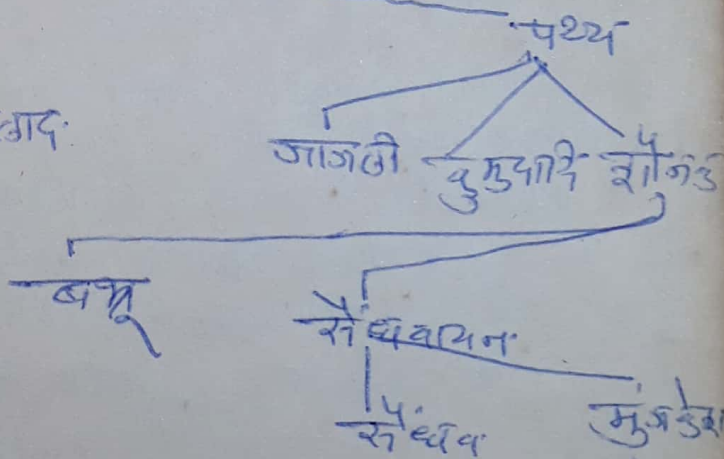 पथ्य
जाजली कुमुदादि शौनक
बभ्रू
सैंधवायन
सैंधव मुंजकेश